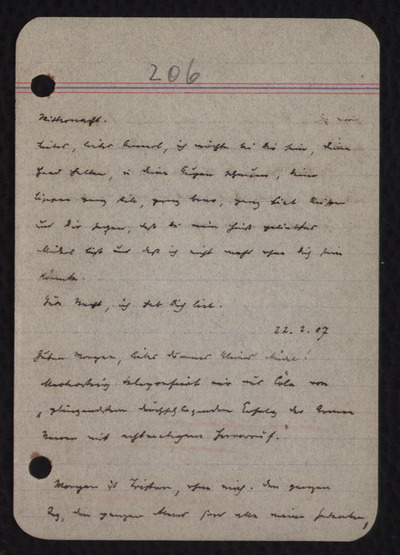 206
Mitternacht.
Liebes, liebes, ich möchte bei Dir sein, Deine
Hand halten, in Deine Augen schauen, Deine
Lippen ganz still, ganz, ganz tief küssen
und Dir sagen, daß Du mein heiß geliebtes
Mädel bist und daß ich nicht mehr ohne Dich sein
könnte.
Gute Nacht, ich hab Dich lieb.
22. 2. 07
Guten Morgen, liebes kleines Mädel!
telegrafiert mir aus Cöln von
„glänzendem durchschlagenden Erfolg der
mit Hervorruf."
Morgen ist Tristan, ohne mich. Den ganzen
Tag, den ganzen Abend sind alle meine Gedanken,